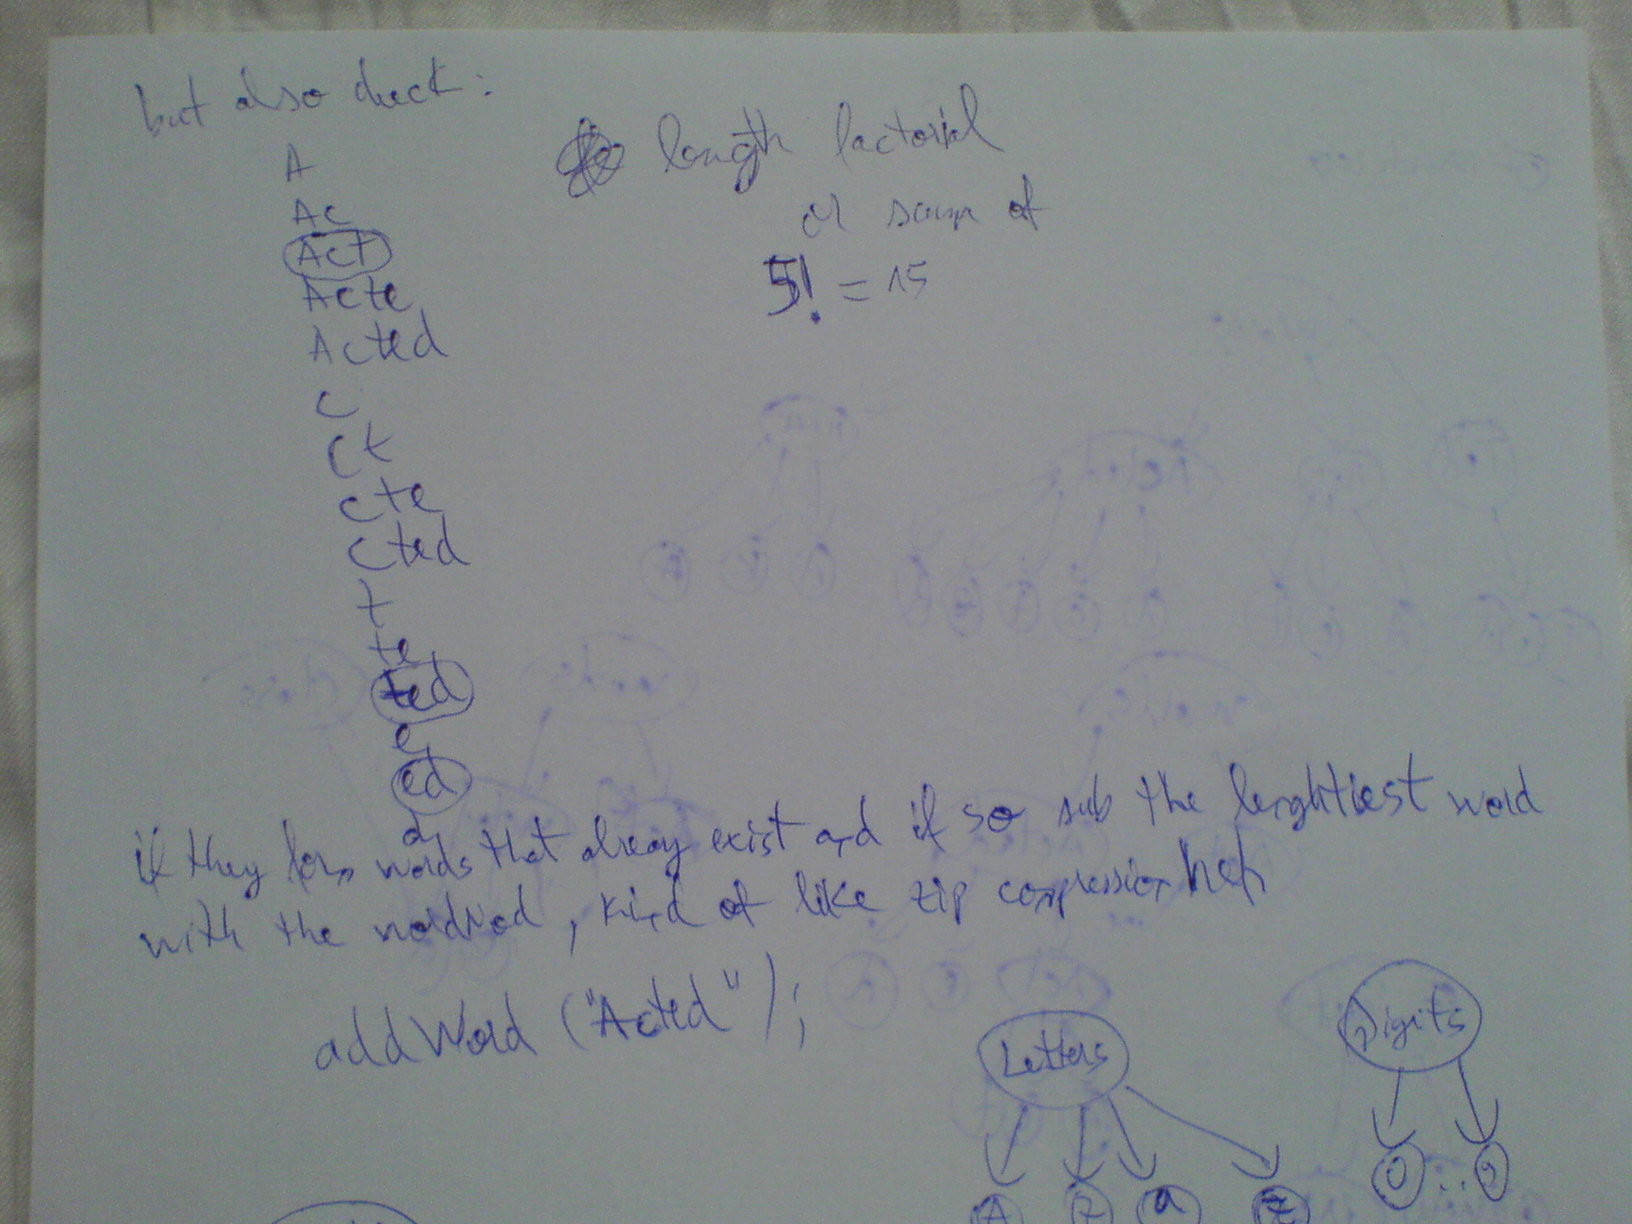 but also check:
A
Ac
Act
Acte
Acted
c
ct
cte
cted
t
te
ted
e
ed
d
length factorial
or sum of
5! = 15
if they form words that alreay exist and if so sub the lenghtiest word
with the wordNod, kind of like zip compression heh
addWord ("Acted");
Letters
Digits
A Z a z
0 .. 9